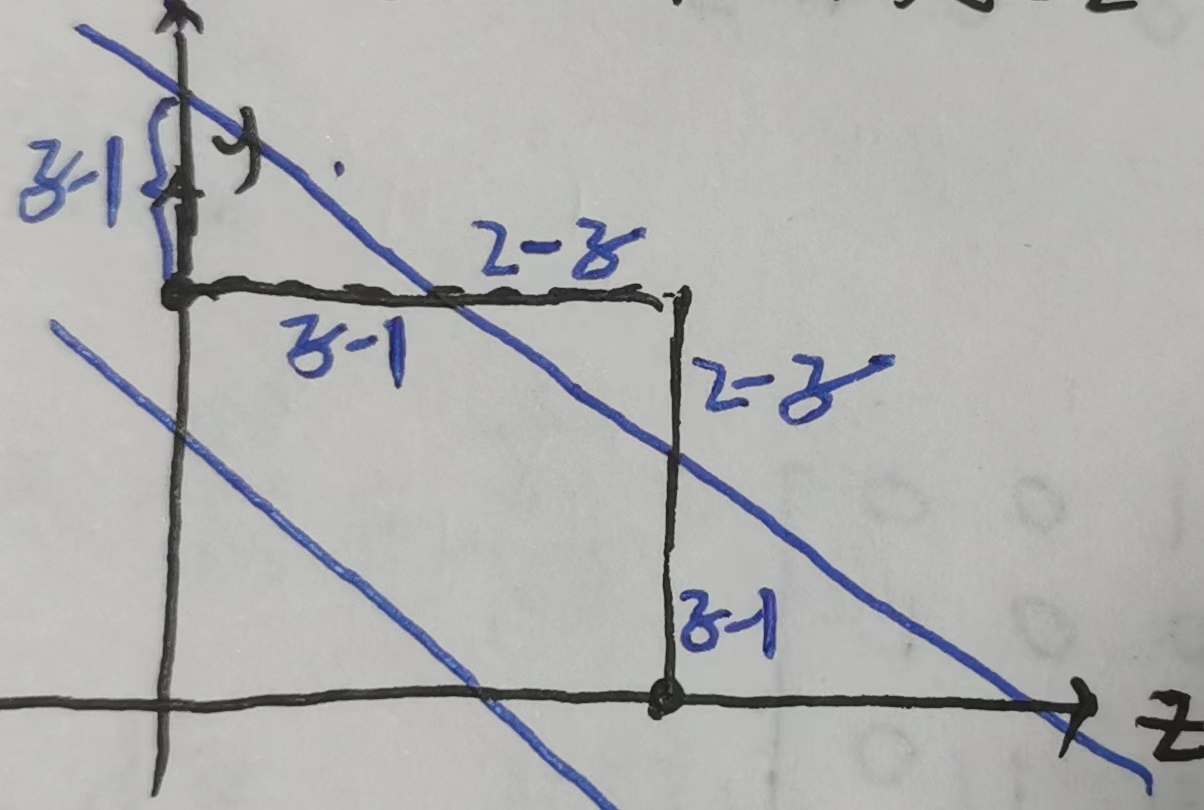 y
z-1
2-z
z-1
2-z
z-1
z